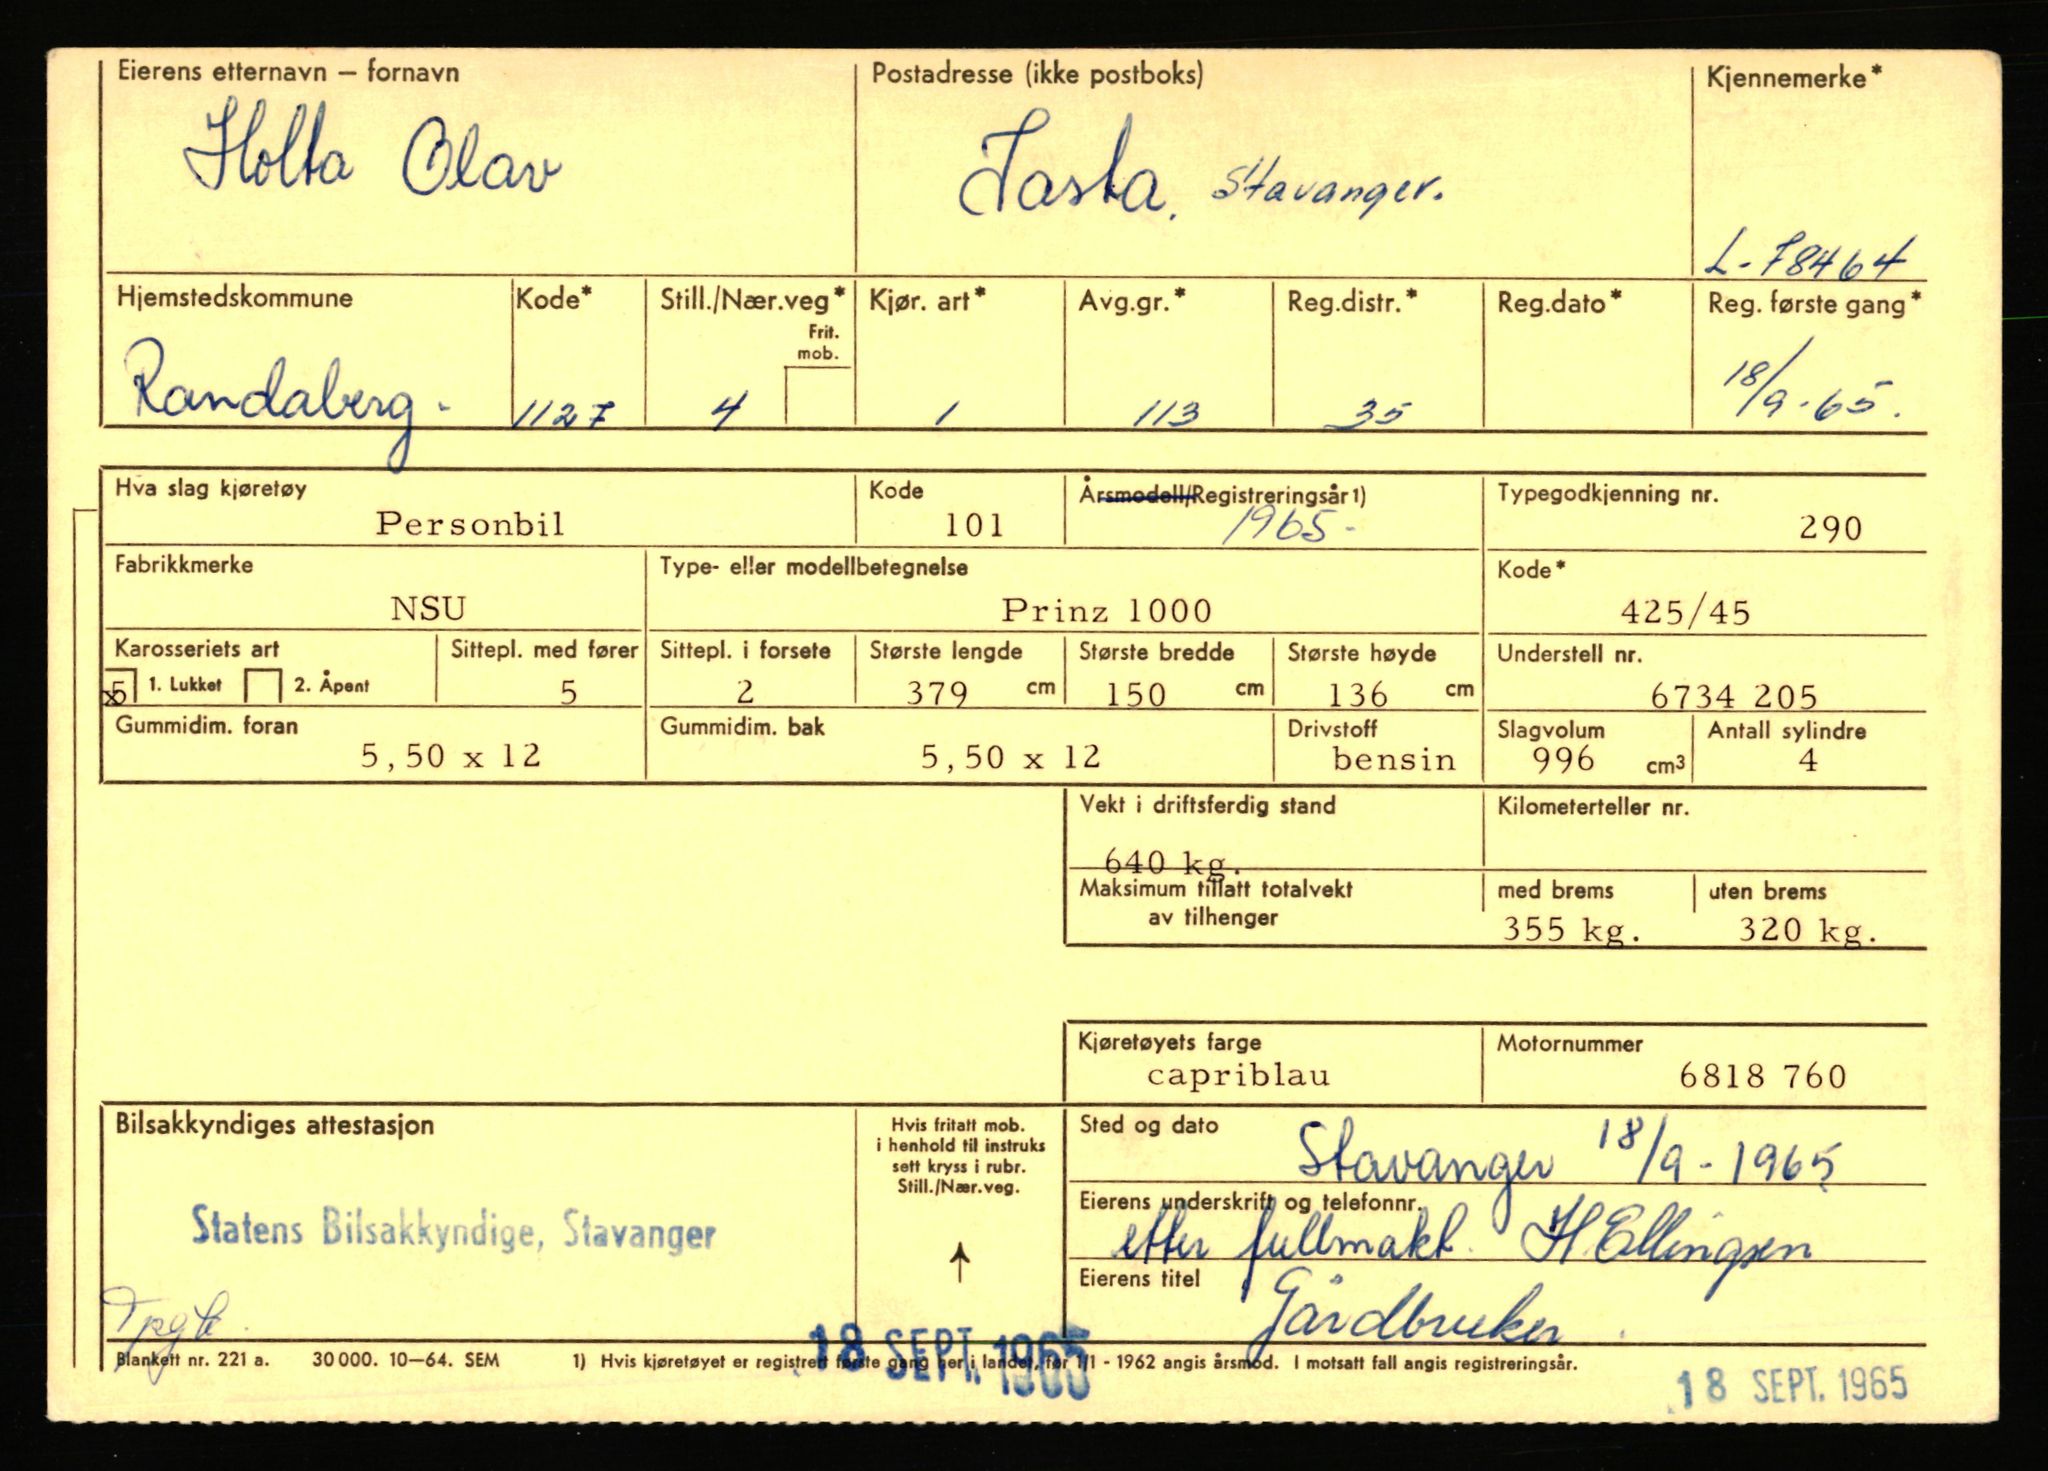 Eierens etternavn — fornavn Postadresse (ikke postboks) Kjennemerke*
Holta Olav Tasta, Stavanger.
L-78464
Hjemstedskommune Kode* Still./Nær.veg* Kjør. art* Avg.gr.* Reg.distr.* Reg.dato* Reg. første gang*
Frit.
mob.
Randaberg. 1127 4 1 113 35 18/9-65.
Hva slag kjøretøy Kode Årsmodell/Registreringsår1) Typegodkjenning nr.
Personbil 101 1965- 290
Fabrikkmerke Type- eller modellbetegnelse Kode*
NSU Prinz 1000 425/45
Karosseriets art Sittepl. med fører Sittepl. i forsete Største lengde Største bredde Største høyde Understell nr.
x5 1. Lukket 2. Åpent 5 2 379 cm 150 cm 136 cm 6734 205
Gummidim. foran Gummidim. bak Drivstoff Slagvolum Antall sylindre
5,50 x 12 5,50 x 12 bensin 996 cm3 4
Vekt i driftsferdig stand Kilometerteller nr.
640 kg.
Maksimum tillatt totalvekt med brems uten brems
av tilhenger 355 kg. 320 kg.
Kjøretøyets farge Motornummer
capriblau 6818 760
Bilsakkyndiges attestasjon Hvis fritatt mob. Sted og dato
i henhold til instruks
sett kryss i rubr.
Still./Nær.veg.
Stavanger 18/9-1965
Eierens underskrift og telefonnr.
Statens Bilsakkyndige, Stavanger etter fullmakt. H Ellingsen
Eierens titel
Gårdbruker.
18 SEPT. 1965
Blankett nr. 221 a. 30 000. 10—64. SEM 1) Hvis kjøretøyet er registrert første gang her i landet, før 1/1 - 1962 angis årsmod. I motsatt fall angis registreringsår.
18 SEPT. 1965